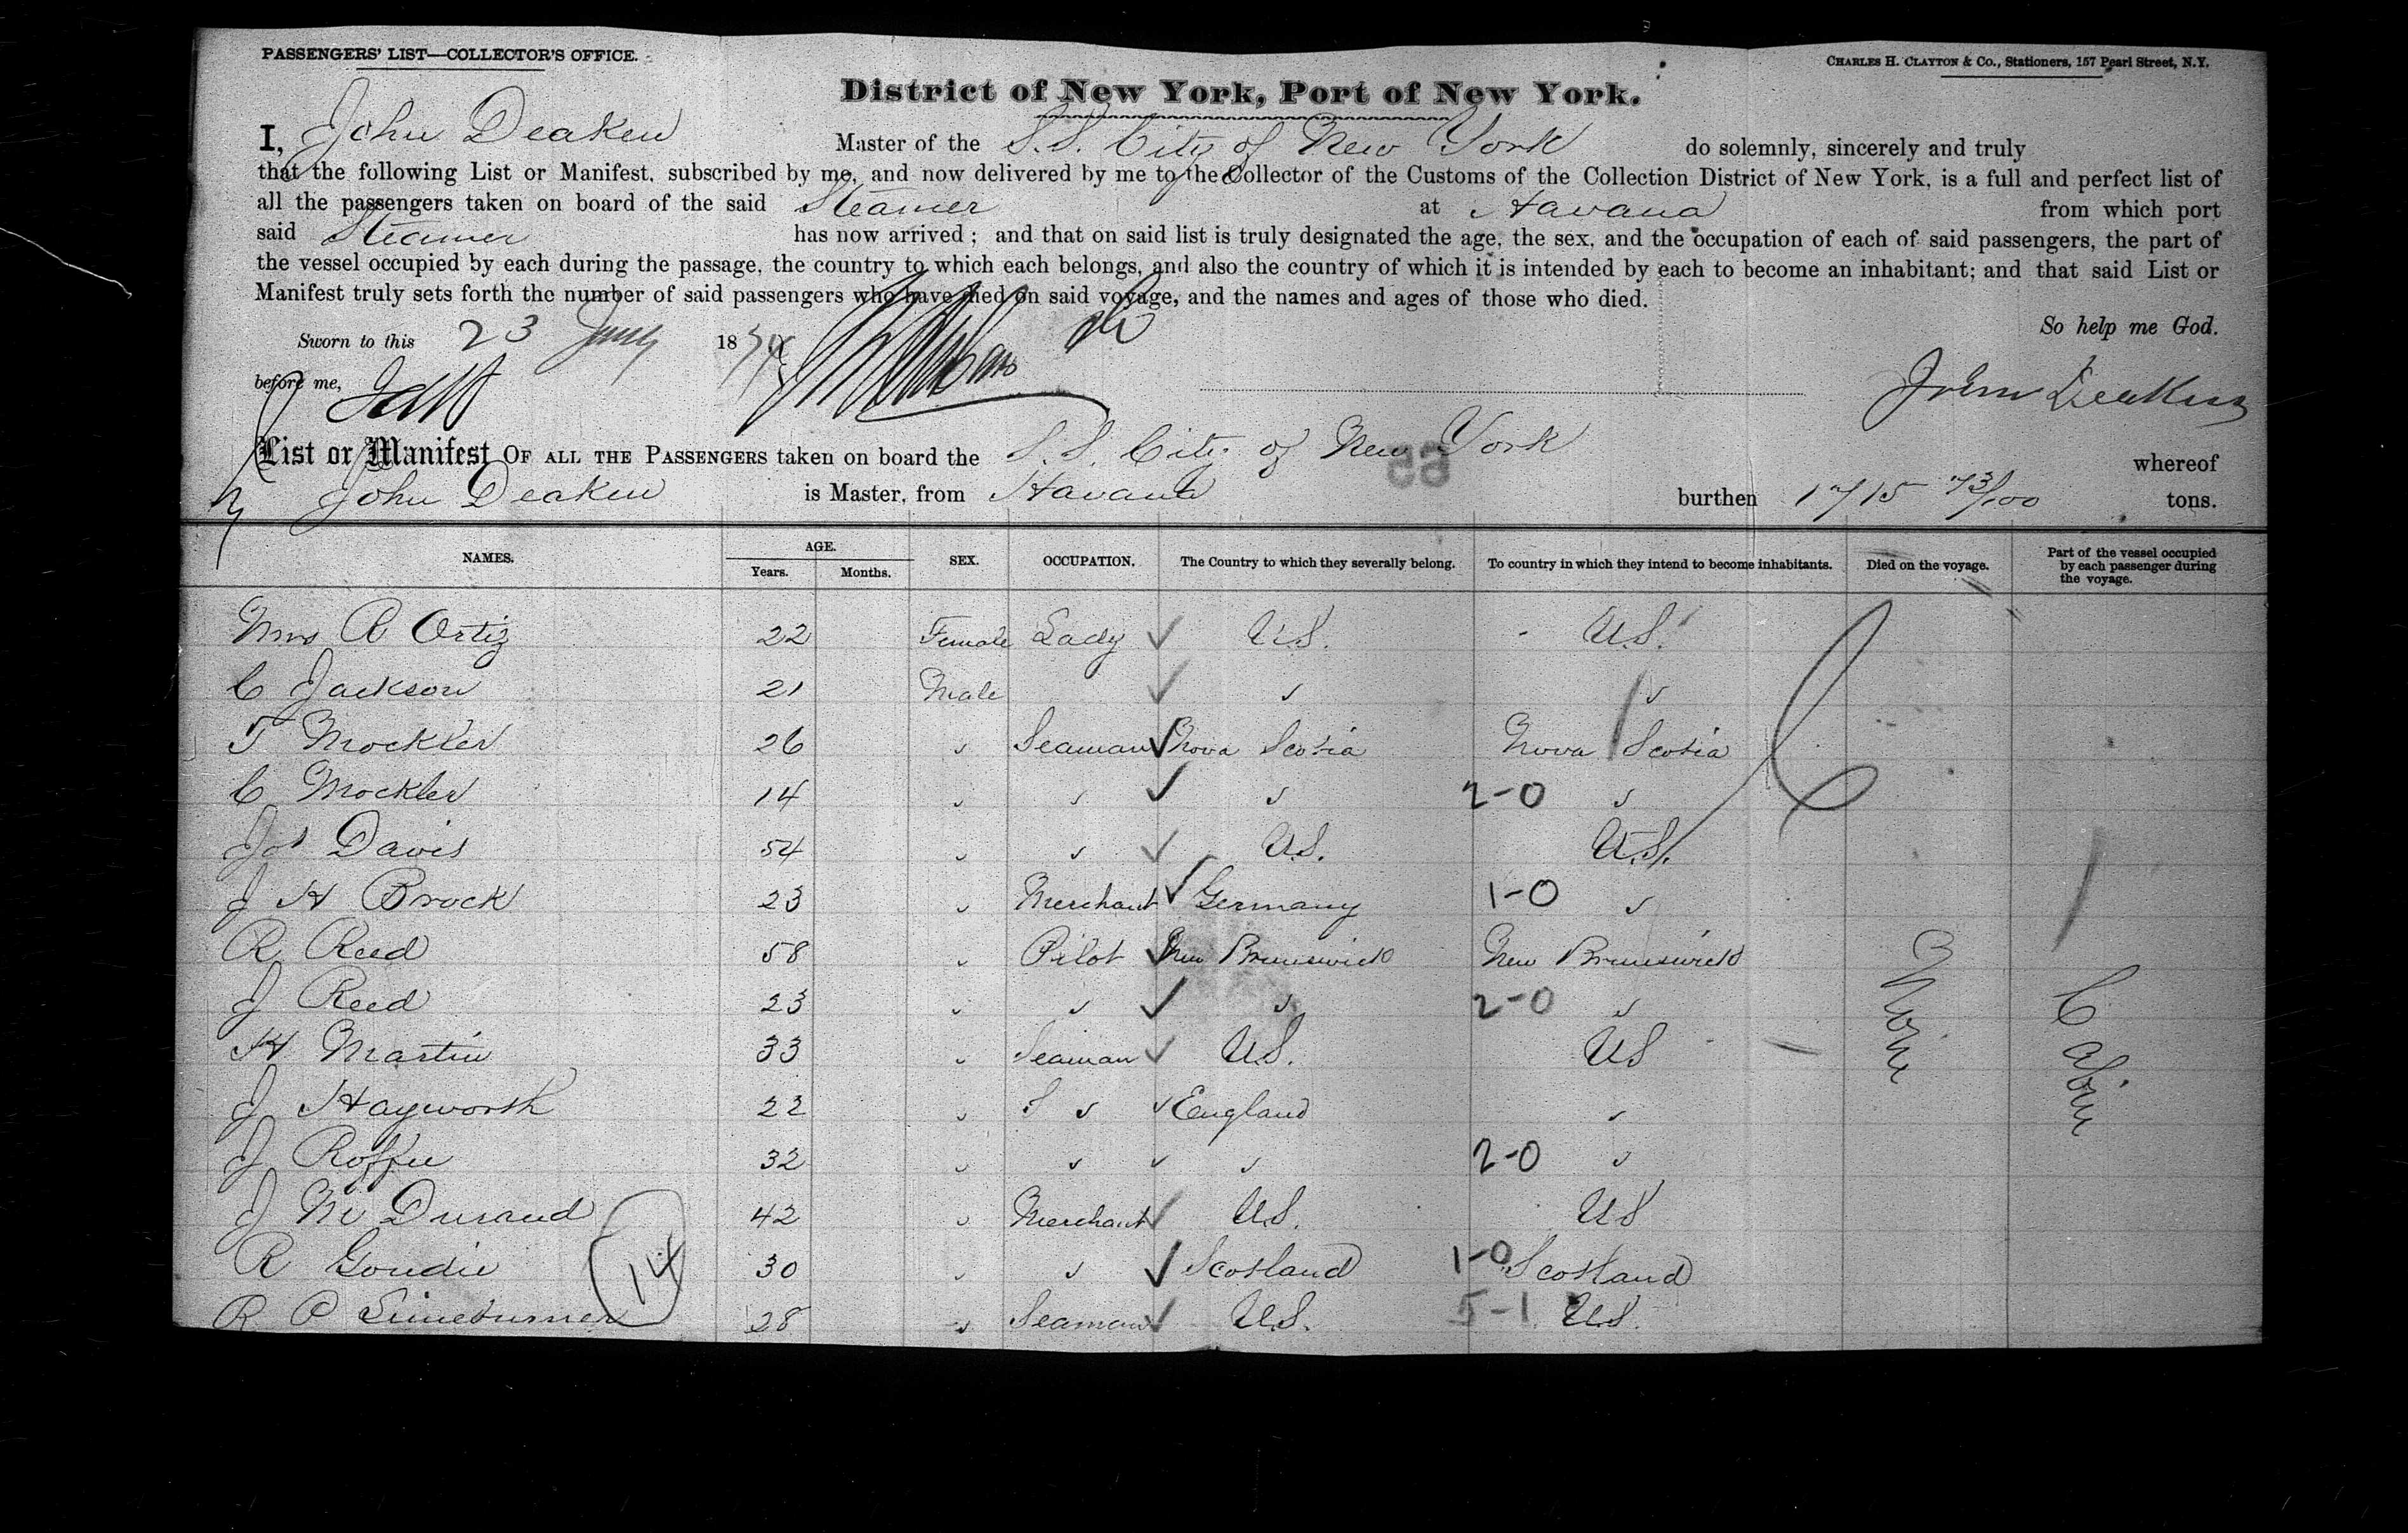 PASSENGERS' LIST—COLLECTOR'S OFFICE.
CHARLES H. CLAYTON & CO., Stationers, 157 Pearl Street, N.Y.
District of New York, Port of New York.
I, John Deaken Master of the S.S. City of New York do solemnly, sincerely and truly
that the following List or Manifest, subscribed by me, and now delivered by me to the Collector of the Customs of the Collection District of New York, is a full and perfect list of
all the passengers taken on board of the said Steamer at Havana from which port
said Steamer has now arrived; and that on said list is truly designated the age, the sex, and the occupation of each of said passengers, the part of
the vessel occupied by each during the passage, the country to which each belongs, and also the country of which it is intended by each to become an inhabitant; and that said List or
Manifest truly sets forth the number of said passengers who have died on said voyage, and the names and ages of those who died.
So help me God.
Sworn to this 23 18
before me,
John Deaken
List or Manifest OF ALL THE PASSENGERS taken on board the S.S. City of New York whereof
John Deaken is Master, from Havana burthen 1715 73/100 tons.
NAMES. AGE. Years. Months. SEX. OCCUPATION. The Country to which they severally belong. To country in which they intend to become inhabitants. Died on the voyage. Part of the vessel occupied by each passenger during the voyage.
Mrs R Ortiz 22 Female Lady ✓ U.S. U.S.
C Jackson 21 Male ✓ " "
T Mockler 26 " Seaman ✓ Nova Scotia Nova Scotia
C Mockler 14 " " ✓ " 2-0 "
Jos Davis 54 " " ✓ U.S. U.S.
J H Brock 23 " Merchant ✓ Germany 1-0 "
R Reed 58 " Pilot ✓ New Brunswick New Brunswick
J Reed 23 " " ✓ " 2-0 "
H Martin 33 " Seaman ✓ U.S. US
J Hayworth 22 " " ✓ England "
J 32 " " ✓ " 2-0 "
J M Durand 42 " Merchant ✓ U.S. US
R Goudie 30 " " ✓ Scotland 1-0 Scotland
R P 28 " Seaman ✓ U.S. 5-1 U.S.
14
None
Cabin